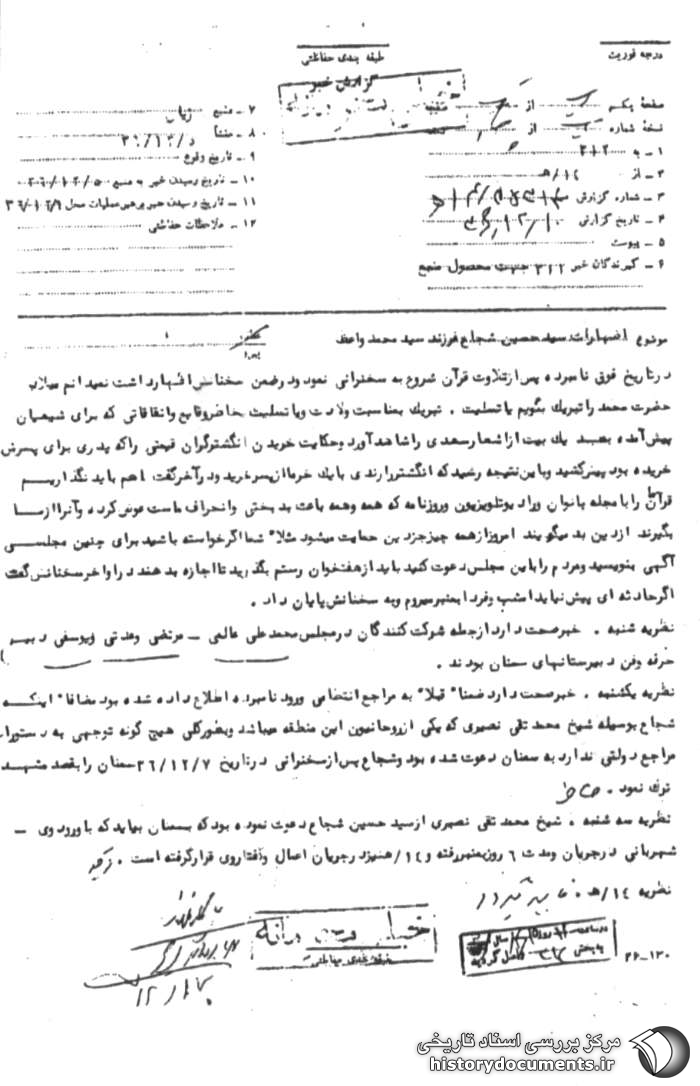 درجه فوریت
طبقه بندی حفاظتی
گزارش خبر
صفحه یکم از
نسخه شماره از
۱ ـ به ۳۱۲
۲ ـ از ۱۴/ه‍
۳ ـ شماره گزارش
۴ ـ تاریخ گزارش
۵ ـ پیوست
۶ ـ گیرندگان خبر ۳۱۲ جهت محصول منبع
۷ ـ منبع
۸ ـ منشأ
۹ ـ تاریخ وقوع
۱۰ ـ تاریخ رسیدن خبر به منبع
۱۱ ـ تاریخ رسیدن خبر برهبر عملیات محل
۱۲ ـ ملاحظات حفاظتی
موضوع اظهارات سید حسین شجاع فرزند سید محمد واعظ
در تاریخ فوق نامبرده پس از تلاوت قرآن شروع به سخنرانی نمود و در ضمن سخنانش اظهار داشت نمیدانم میلاد
حضرت محمد را تبریک بگویم یا تسلیت . تبریک بمناسبت ولادت و یا تسلیت بخاطر وقایع و اتفاقاتی که برای شیعیان
پیش آمده بعد یک بیت از اشعار سعدی را شاهد آورد و حکایت خریدن انگشتر گران قیمتی را که پدری برای پسرش
خریده بود پیش کشید و باین نتیجه رسید که انگشتر را رندی با یک خرما از پسر خرید و در آخر گفت ما هم باید نگذاریم
قرآن را با مجله بانوان و رادیو تلویزیون و روزنامه که همه و همه باعث بدبختی و انحراف ماست عوض کرده و آنرا از ما
بگیرند از دین بد میگویند امروز از همه چیز جز دین حمایت میشود مثلا" شما اگر خواسته باشید برای چنین مجلسی
آگهی بنویسید و مردم را باین مجلس دعوت کنید باید از هفتخوان رستم بگذرید تا اجازه بدهند در اواخر سخنانش گفت
اگر حادثه ای پیش نیاید امشب و فردا بمنبر میروم و به سخنانش پایان داد .
نظریه شنبه . خبر صحت دارد از جمله شرکت کنندگان در مجلس محمد علی عالمی ـ مرتضی وحدتی و یوسفی دبیر
حرفه و فن دبیرستانهای سمنان بودند .
نظریه یکشنبه . خبر صحت دارد ضمنا" قبلا" به مراجع انتظامی ورود نامبرده اطلاع داده شده بود مضافا" اینکه
شجاع بوسیله شیخ محمد تقی نصیری که یکی از روحانیون این منطقه میباشد و بطور کلی هیچ گونه توجهی به دستورات
مراجع دولتی ندارد به سمنان دعوت شده بود و شجاع پس از سخنرانی در تاریخ ۳۶/۱۲/۷ سمنان را بقصد مشهد
ترک نمود .
نظریه سه شنبه . شیخ محمد تقی نصیری از سید حسین شجاع دعوت نموده بود که بسمنان بیاید که با ورود وی ـ
شهربانی در جریان و مدت ۶ روز بمنبر رفته و ۱۴/ه‍ نیز در جریان اعمال و رفتار وی قرار گرفته است .
نظریه ۱۴/ه‍ .
طبقه بندی حفاظتی
۳۶ـ۱۳۰
مرکز بررسی اسناد تاریخی
historydocuments.ir